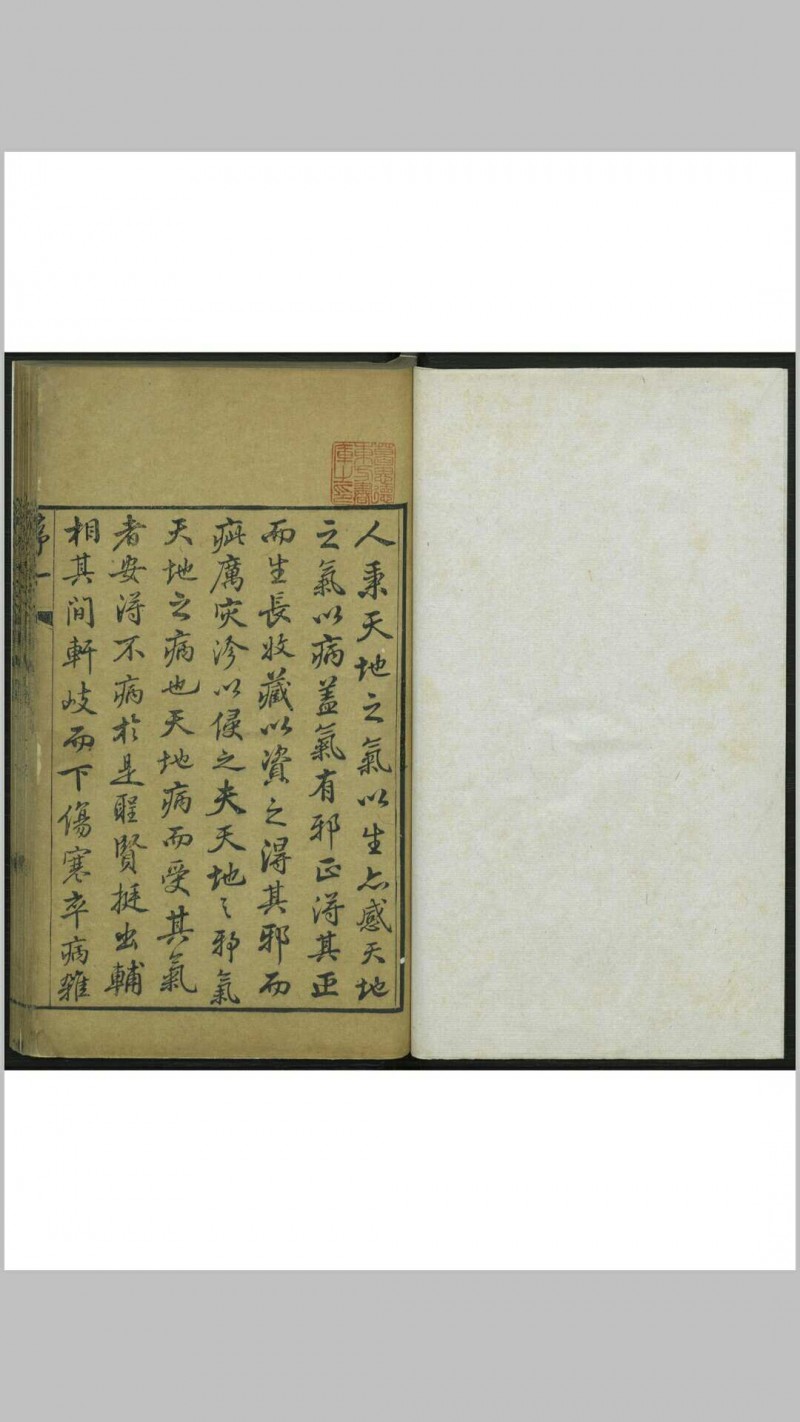 人秉天地之氣以生亦感天地
之氣以病蓋氣有邪正得其正
而生長收藏以資之得其邪而
疵厲灾沴以侵之夫天地之邪氣
天地之病也天地病而受其氣
者安得不病於是聖賢挺出輔
相其間軒岐而下傷寒卒病雜
序一